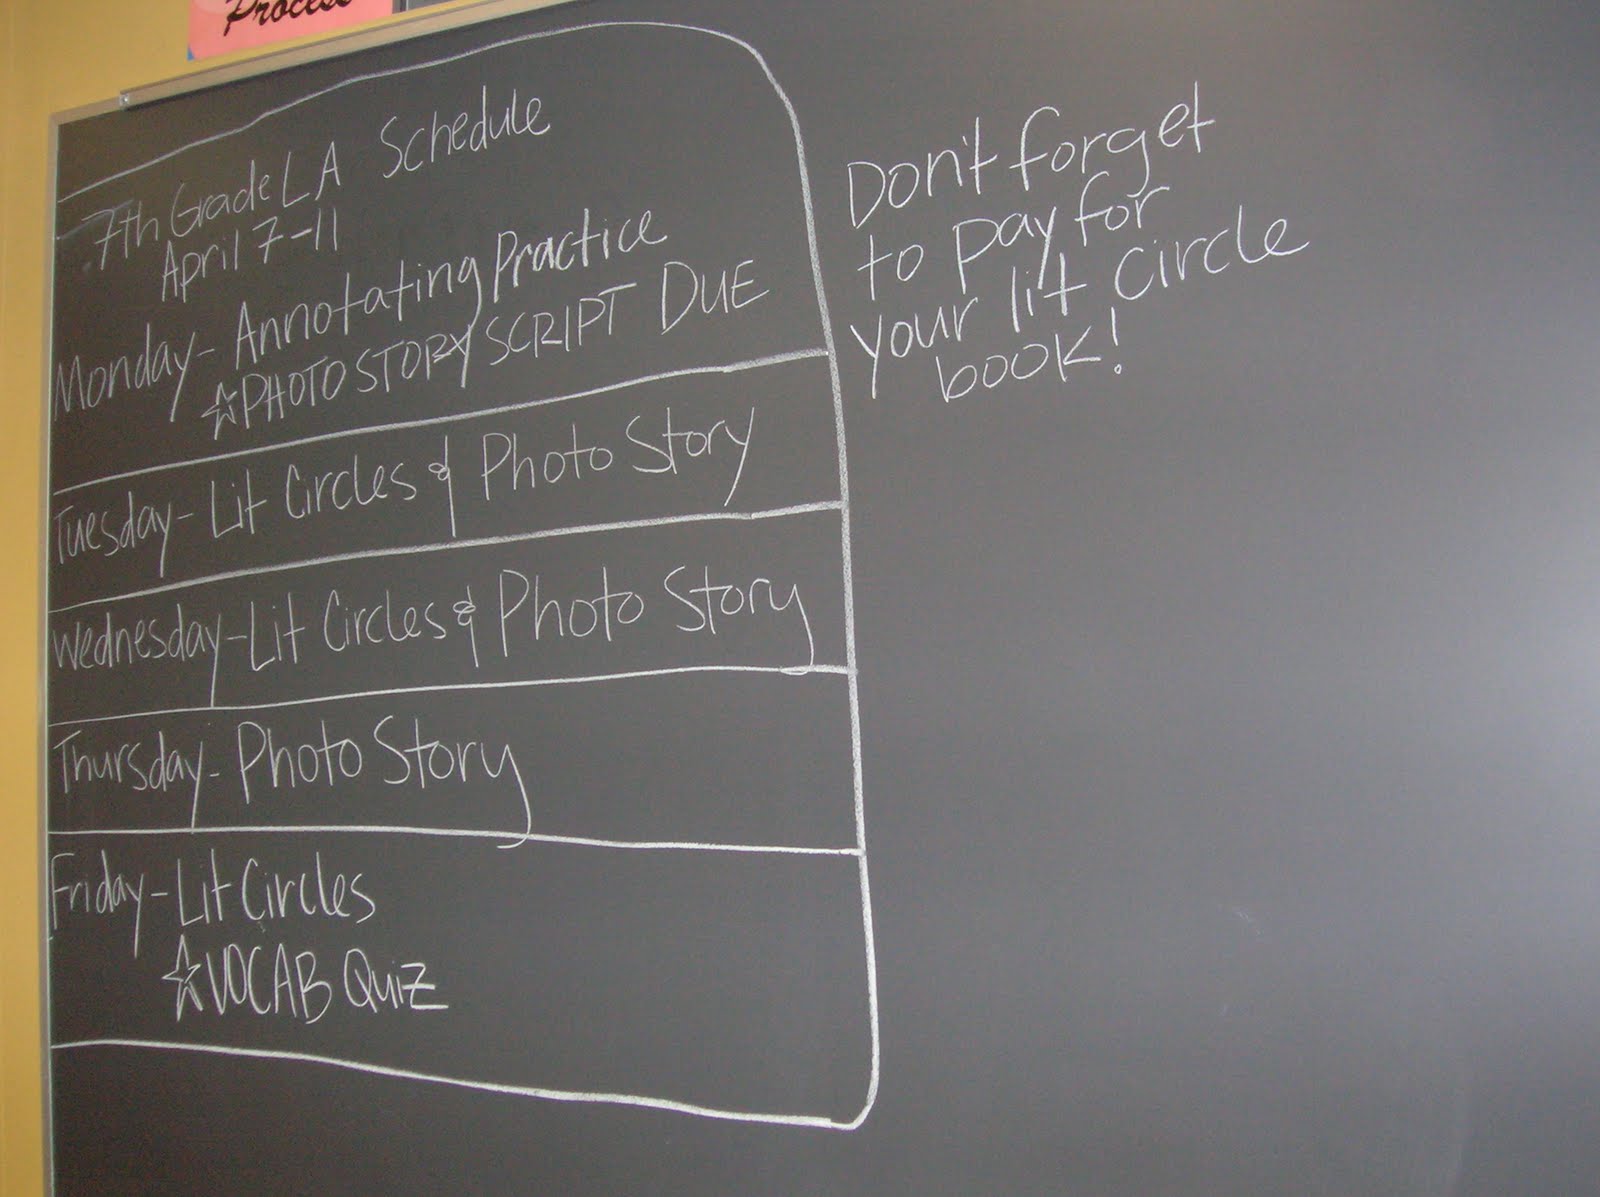 Process
7th Grade LA Schedule
April 7-11
Monday- Annotating Practice
☆PHOTO STORY SCRIPT DUE
Tuesday- Lit Circles & Photo Story
Wednesday- Lit Circles & Photo Story
Thursday- Photo Story
Friday- Lit Circles
☆VOCAB Quiz
Don't forget
to pay for
your lit circle
book!